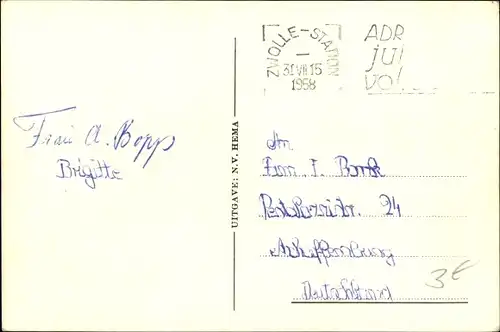 ZWOLLE-STATION
31 VII 15
1958
ADR
jui
vol
Frau A. Bopp
Brigitte
UITGAVE: N.V. HEMA
An
Frau I. Bork
24
Aschaffenburg
Deutschland
3€